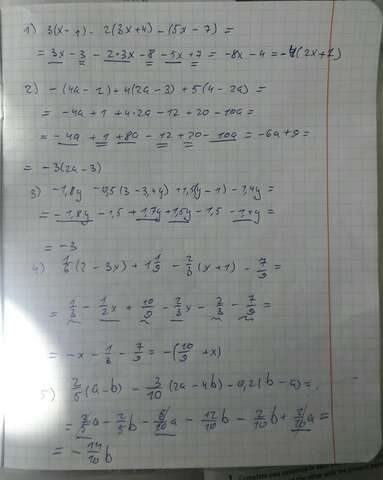 1) 3(x-1) - 2(3x+4) - (5x-7) =
= 3x - 3 - 2·3x - 8 - 5x + 7 = -8x - 4 = -4(2x+1)
2) -(4a-1) + 4(2a-3) + 5(4-2a) =
= -4a + 1 + 4·2a - 12 + 20 - 10a =
= -4a + 1 + 8a - 12 + 20 - 10a = -6a + 9 =
= -3(2a-3)
3) -1,8y - 0,5(3-3,4y) + 1,5(y-1) - 1,4y =
= -1,8y - 1,5 + 1,7y + 1,5y - 1,5 - 1,4y =
= -3
4) 1/6(2-3x) + 1 1/9 - 2/3(x+1) - 7/9 =
= 1/3 - 1/2x + 10/9 - 2/3x - 2/3 - 7/9 =
= -x - 1/3 - 7/9 = -(10/9 + x)
5) 2/5(a-b) - 3/10(2a-4b) - 0,2(b-a) =
= 2/5a - 2/5b - 6/10a - 12/10b - 2/10b + 2/10a =
= - 14/10b